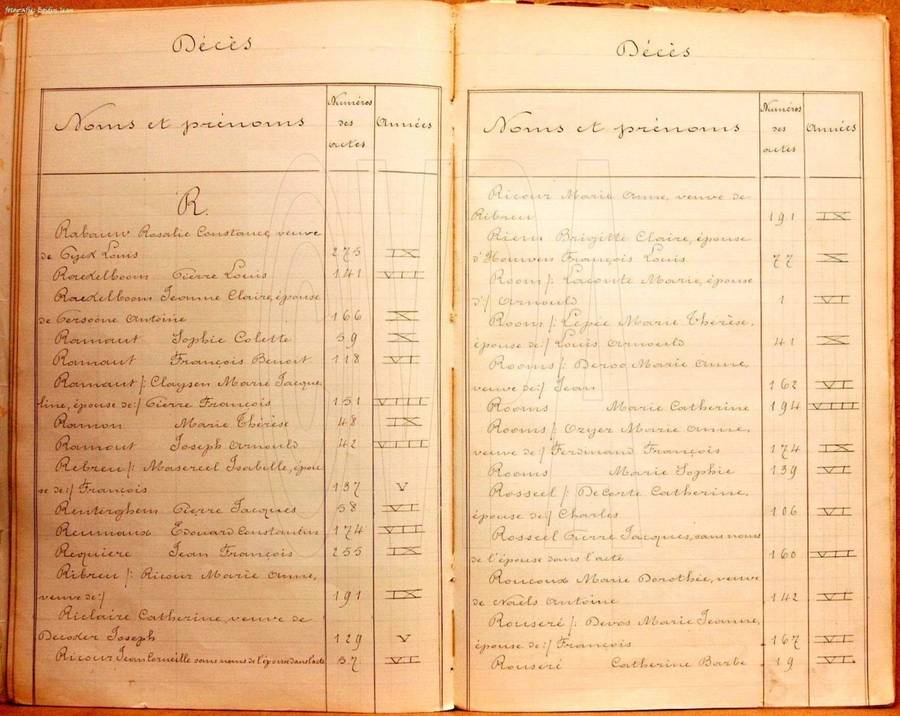 Décès
Noms et prénoms
Numéros des actes
Années
R.
Rabauw Rosalie Constance, veuve
de Louis 275 IX
Raekelboom Pierre Louis 141 VII
Raekelboom Jeanne Claire, épouse
de Persoone Antoine 166 X
Ramaut Sophie Colette 59 X
Ramaut François Benoit 118 VI
Ramaut /: Claysen Marie Jacque-
line, épouse de :/ Pierre François 151 VIII
Ramon Marie Thérèse 48 IX
Ramout Joseph Arnould 42 VIII
Rebreu /: Masereel Isabelle, épou-
se de :/ François 137 V
Renterghem Pierre Jacques 58 VI
Reumaux Edouard Constantin 174 VII
Requiere Jean François 255 IX
Ribreu /: Ricour Marie Anne,
veuve de :/ 191 IX
Riclaire Catherine, veuve de
Decoder Joseph 129 V
Ricour Jean Corneille sans noms de l'épouse dans l'acte 37 VI
Décès
Noms et prénoms
Numéros des actes
Années
Ricour Marie Anne, veuve de
Ribreu 191 IX
Rien Brigitte Claire, épouse
d'Houwen François Louis 77 X
Room /: Laconte Marie, épouse
d :/ Arnould 1 VI
Rooms /: Lepée Marie Thérèse,
épouse de :/ Louis Arnould 41 X
Rooms /: Deroo Marie Anne,
veuve de :/ Jean 162 VI
Rooms Marie Catherine 194 VIII
Rooms /: Ozyer Marie Anne,
veuve de :/ Ferdinand François 174 IX
Rooms Marie Sophie 139 VI
Rosseel /: DeCorte Catherine,
épouse de :/ Charles 106 VI
Rosseel Pierre Jacques, sans noms
de l'épouse dans l'acte 160 VII
Roucoux Marie Dorothée, veuve
de Naels Antoine 142 VI
Rouseré /: Devos Marie Jeanne,
épouse de :/ François 167 VI
Rouseré Catherine Barbe 19 VI